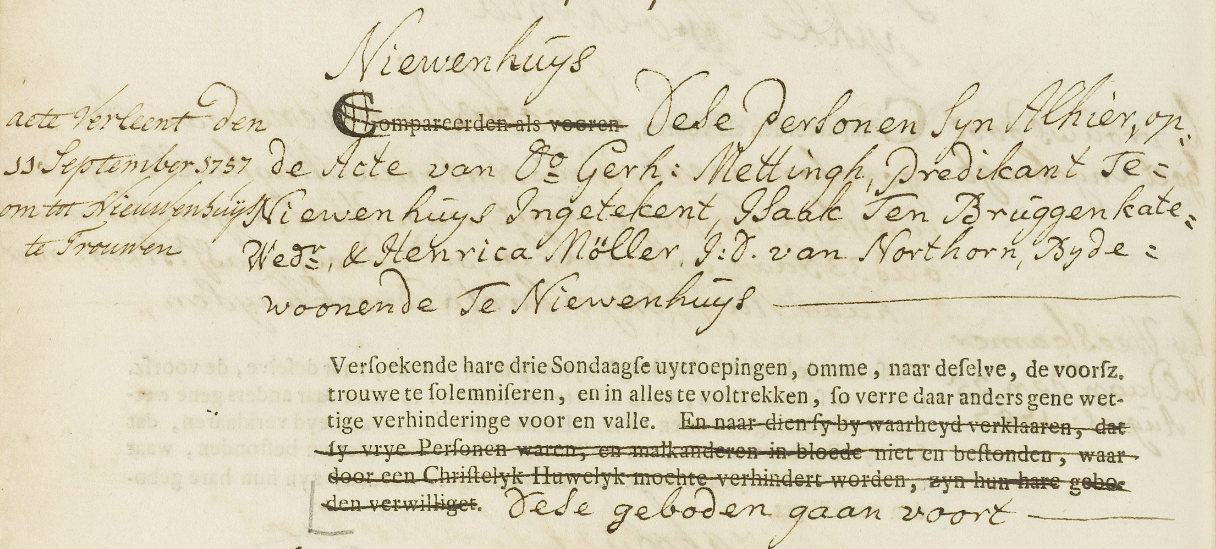 Niewenhuÿs
acte Verleent den
11 September 1757
om tot Nieuwenhuijs
te Trouwen
Compareerden als vooren Dese Personen Syn Alhier, op
de Acte van Do. Gerh: Mettingh, Predikant Te=
Niewenhuys Ingetekent, Isaak Ten Bruggenkate,
Wedr., & Henrica Möller, J:D. van Northorn, Byde=
woonende Te Niewenhuÿs
Versoekende hare drie Sondaagse uytroepingen, omme, naar deselve, de voorsz.
trouwe te solemniseren, en in alles te voltrekken, so verre daar anders gene wet-
tige verhinderinge voor en valle. En naar dien sy by waarheyd verklaaren, dat
sy vrye Personen waren, en malkanderen in bloede niet en bestonden, waar
door een Christelyk Huwelyk mochte verhindert worden, zyn hun hare gebo-
den verwilliget. Dese geboden gaan voort